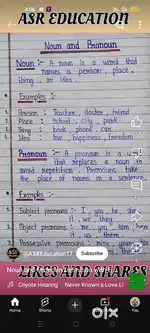 4:06
ASR EDUCATION
Noun and Pronoun
Noun :- A noun is a word that
names a person, place,
thing, or idea
Examples :-
1. Person : Teacher, doctor, friend
2. Place : School, city, park
3. Thing : book, phone, car
4. Idea : love, happiness, freedom
Pronoun :- A pronoun is a
that replaces a noun to
avoid repetition. Pronouns take
the place of nouns in a sentence.
Examples:-
1. Subject pronouns : I, you, he, she,
it, we, they
2. Object pronouns : me, you, him, her
it, us, them
3. Possessive pronouns : mine, yours
@ASREducation17
Subscribe
Noun
LIKES AND SHARES
Coyote Hearing
Never Known a Love Li
Home
Shorts
You
olx